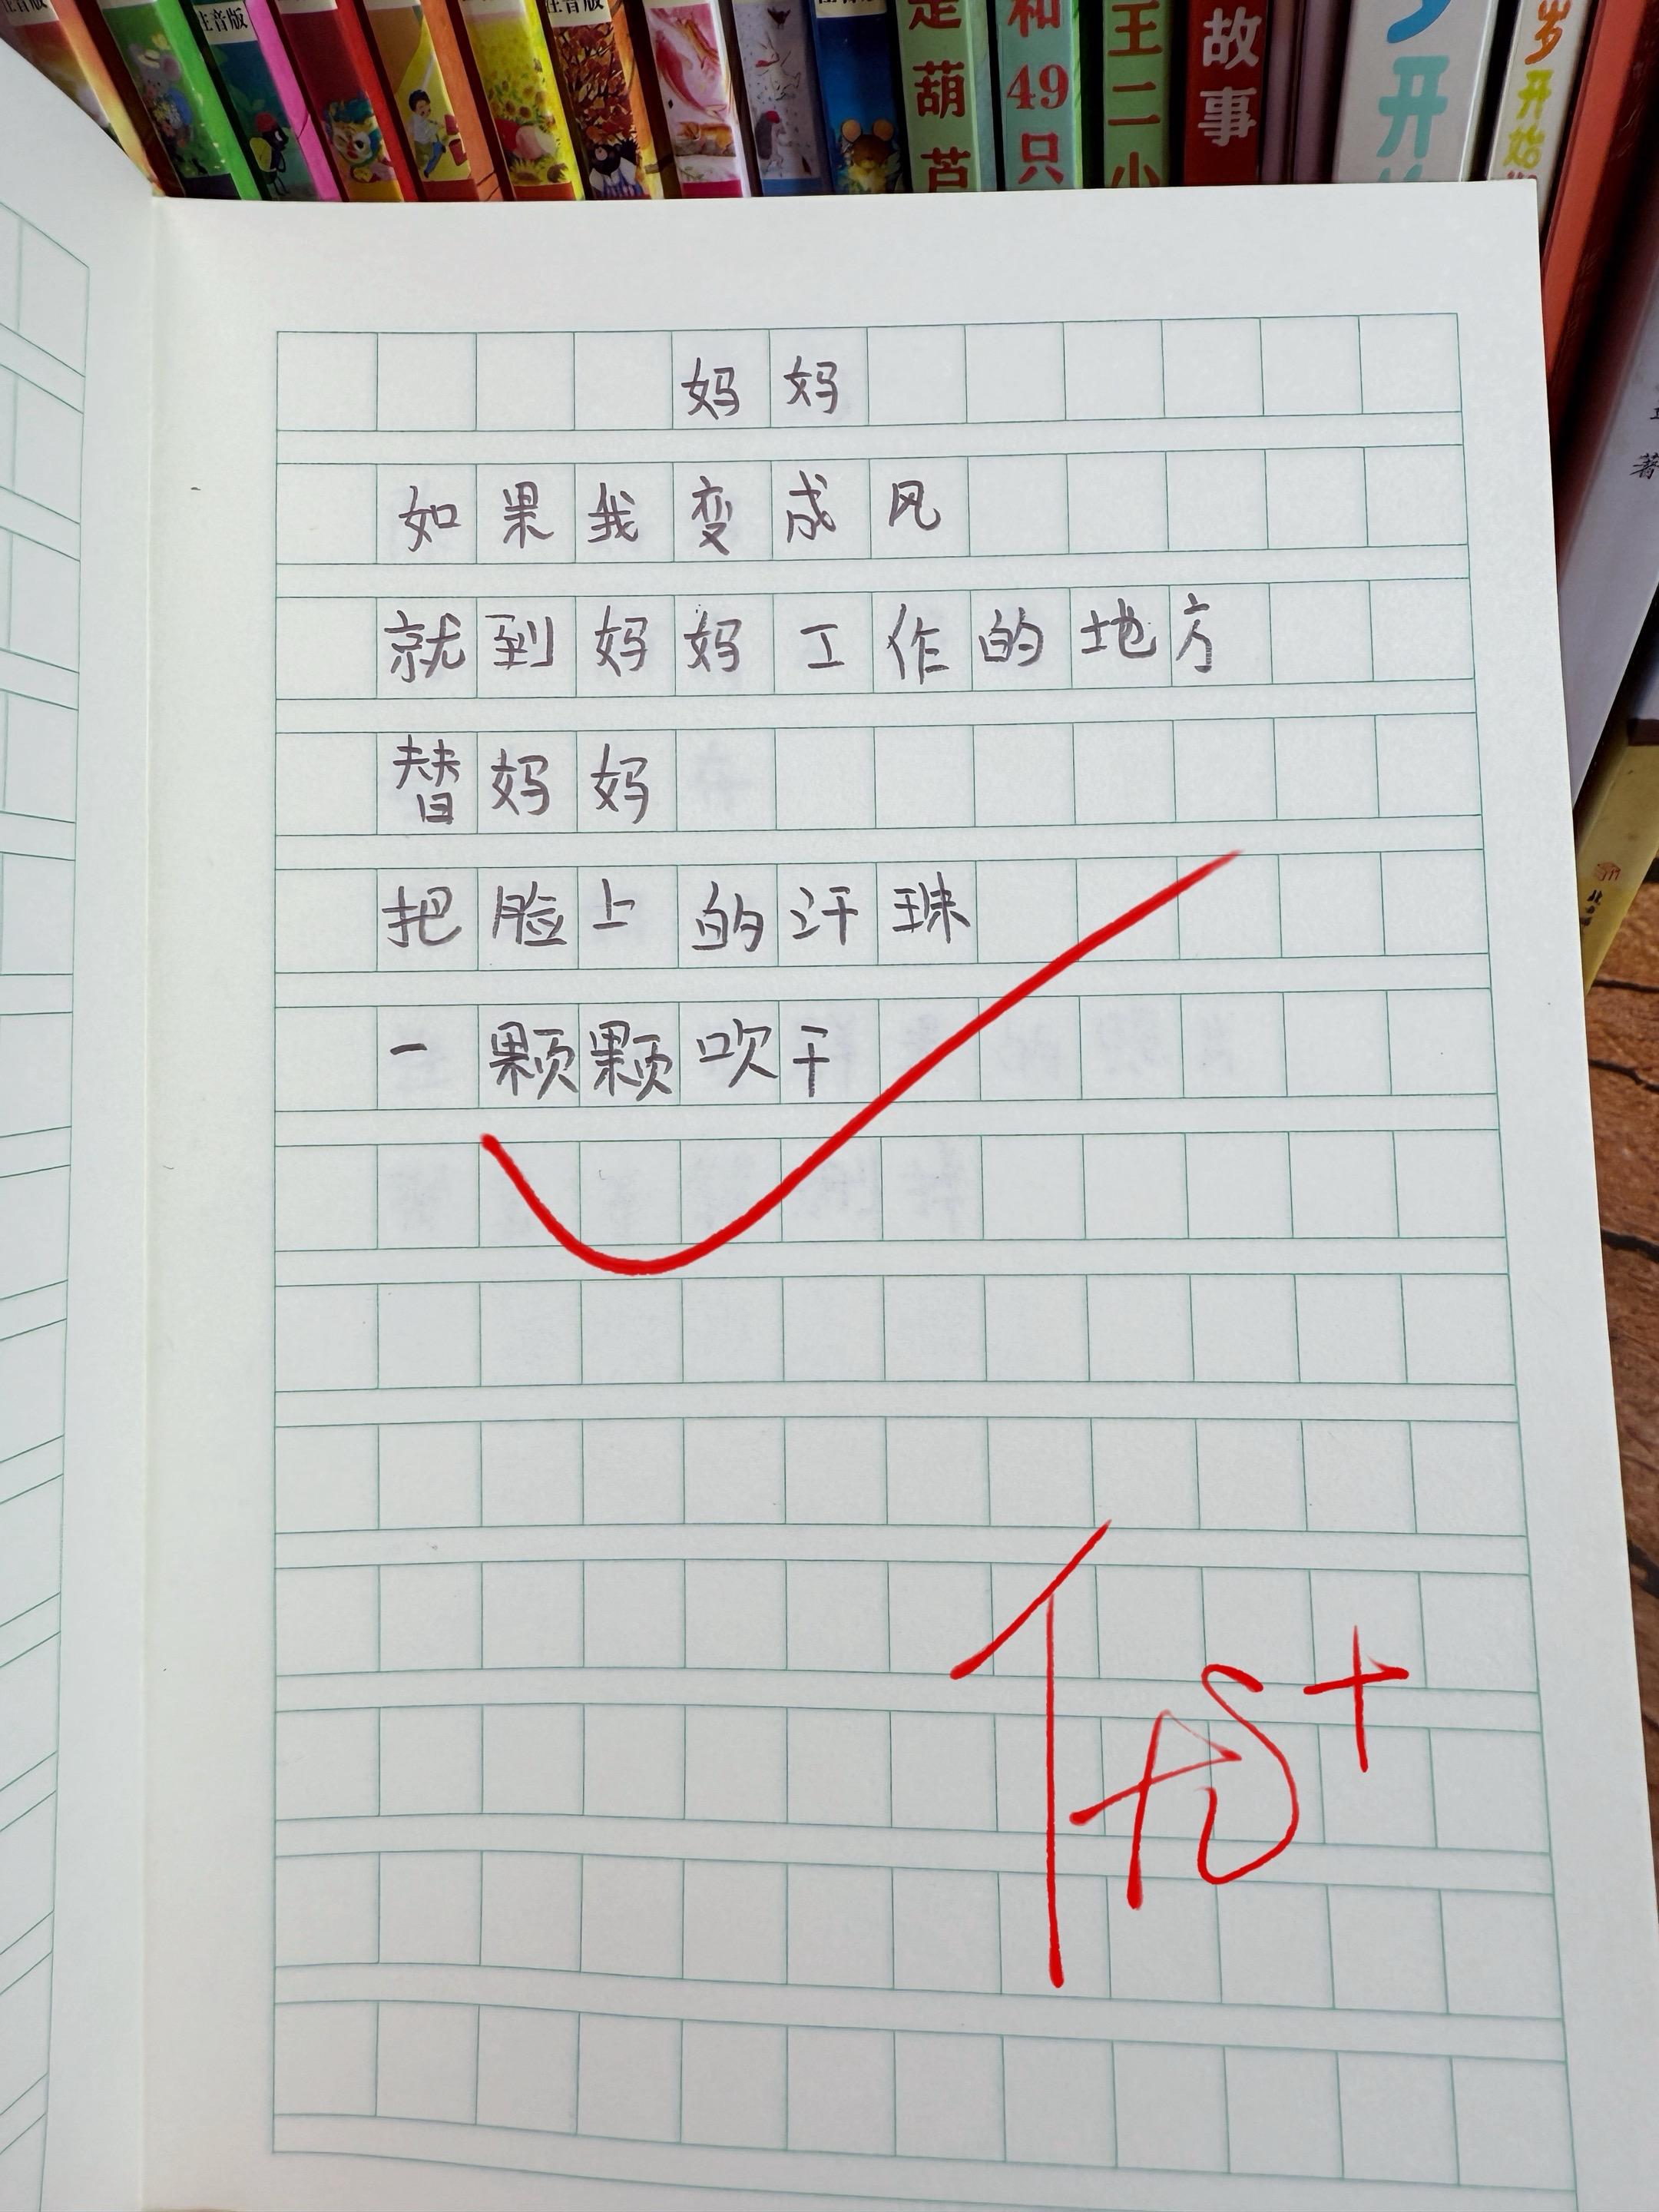 注音版
注音版
注音版
注音版
是葫芦
和49只
王二小
故事
岁开始
岁开始
著
妈妈
如果我变成风
就到妈妈工作的地方
替妈妈
把脸上的汗珠
一颗颗吹干
优+